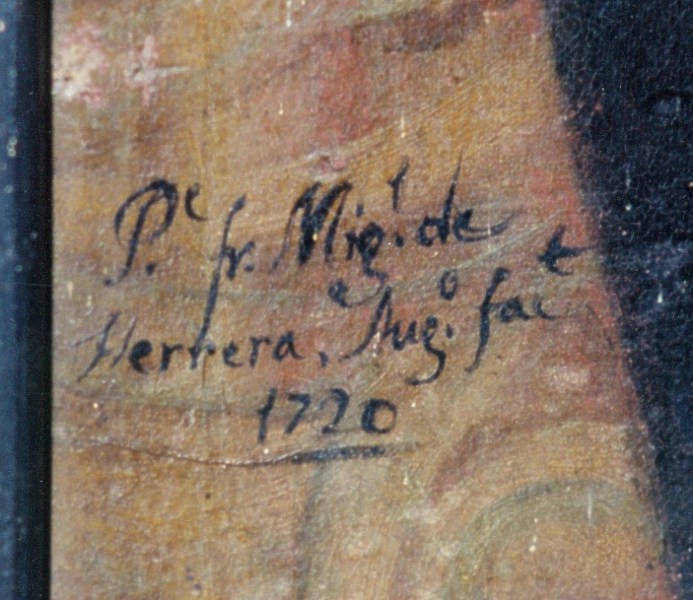 P.e fr. Mig.l de
Herrera, Aug.o fac.t
1720